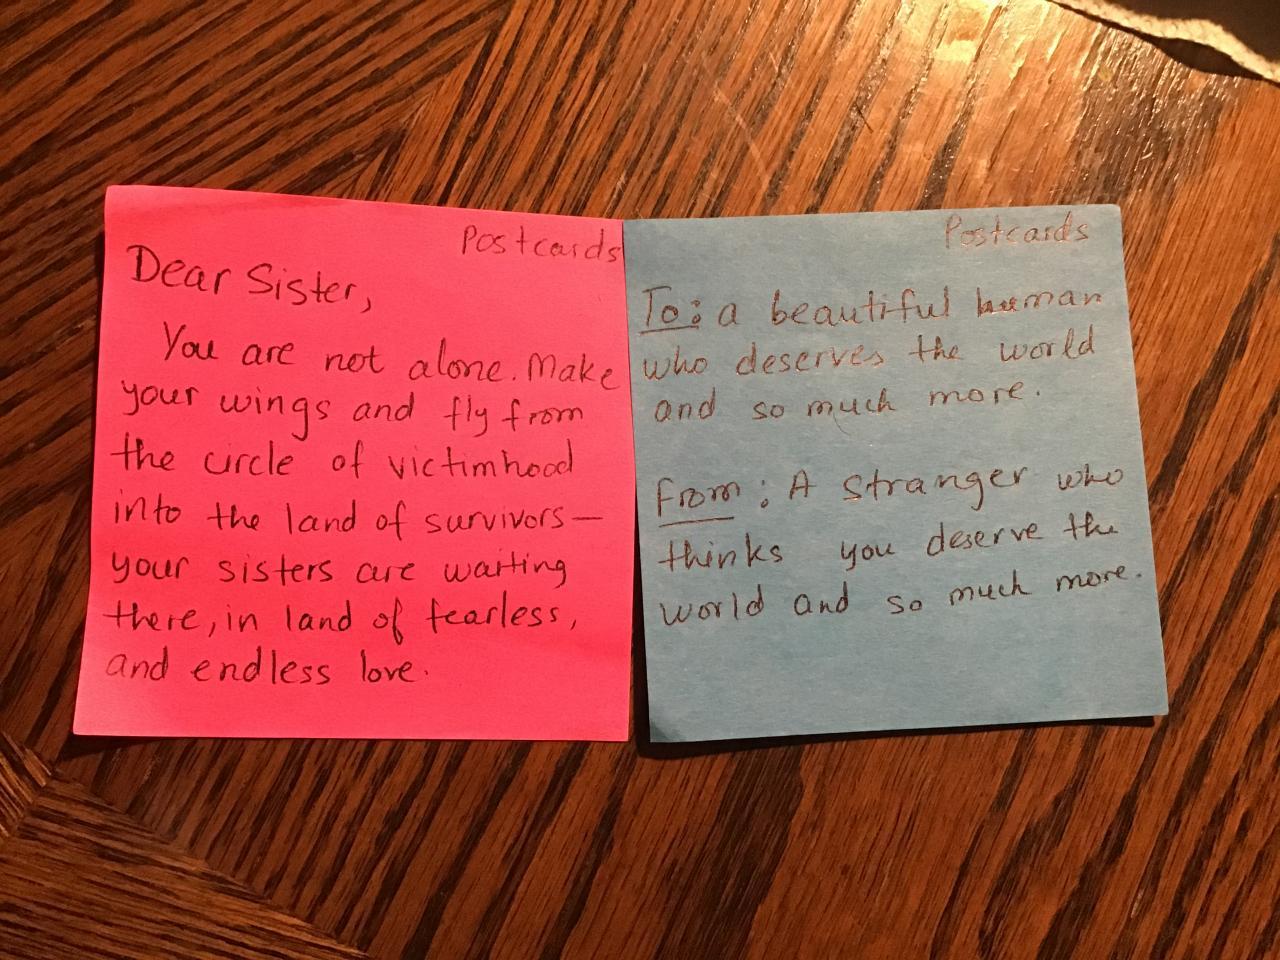 Postcards
Dear Sister,
You are not alone. Make
your wings and fly from
the circle of victimhood
into the land of survivors—
your sisters are waiting
there, in land of fearless,
and endless love.
Postcards
To: a beautiful human
who deserves the world
and so much more.
From: A stranger who
thinks you deserve the
world and so much more.